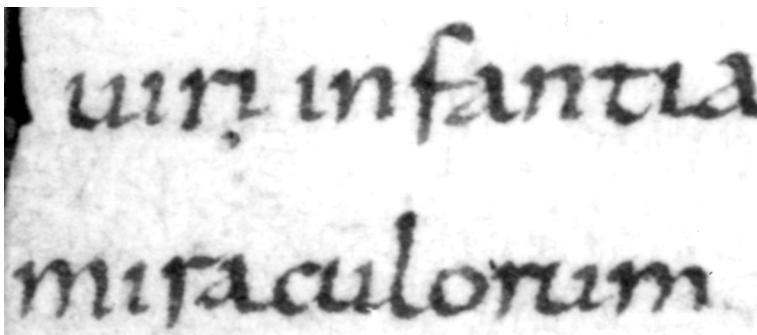 uiri infantia
miraculorum